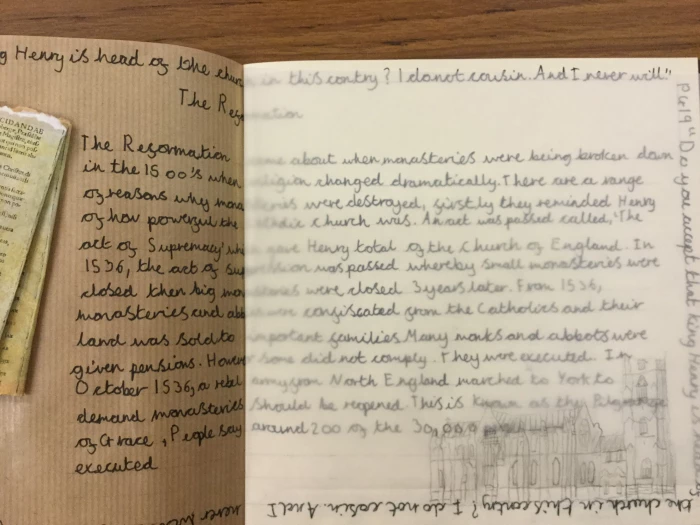 g Henry is head of the church in this contry? I do not cousin. And I never will"
The Reformation
The Reformation came about when monasteries were being broken down
in the 1500's when religion changed dramatically. There are a range
of reasons why monasteries were destroyed, firstly they reminded Henry
of how powerful the catholic church was. An act was passed called, 'The
act of Supremacy' which gave Henry total of the Church of England. In
1536, the act of Suppression was passed whereby small monasteries were
closed then big monasteries were closed 3 years later. From 1536,
monasteries and abbeys were confiscated from the Catholics and their
land was sold to important families Many monks and abbots were
given pensions. However some did not comply. They were executed. In
October 1536, a rebel army from North England marched to York to
demand monasteries should be reopened. This is known as the Pilgrimage
of Grace, People say around 200 of the 30,000
executed
Pg19 "Do you accept that King Henry is
the church in this contry? I do not cosin. And I never